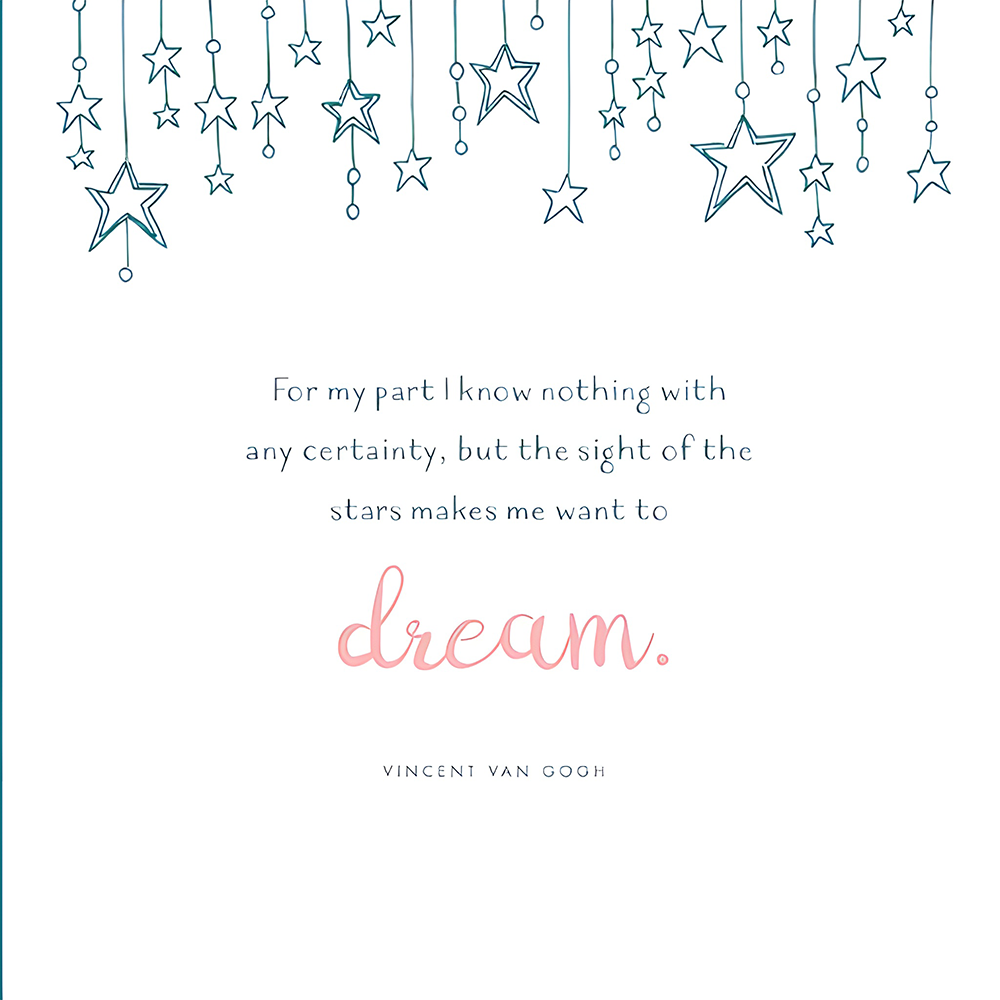 For my part I know nothing with
any certainty, but the sight of the
stars makes me want to
dream.
VINCENT VAN GOGH